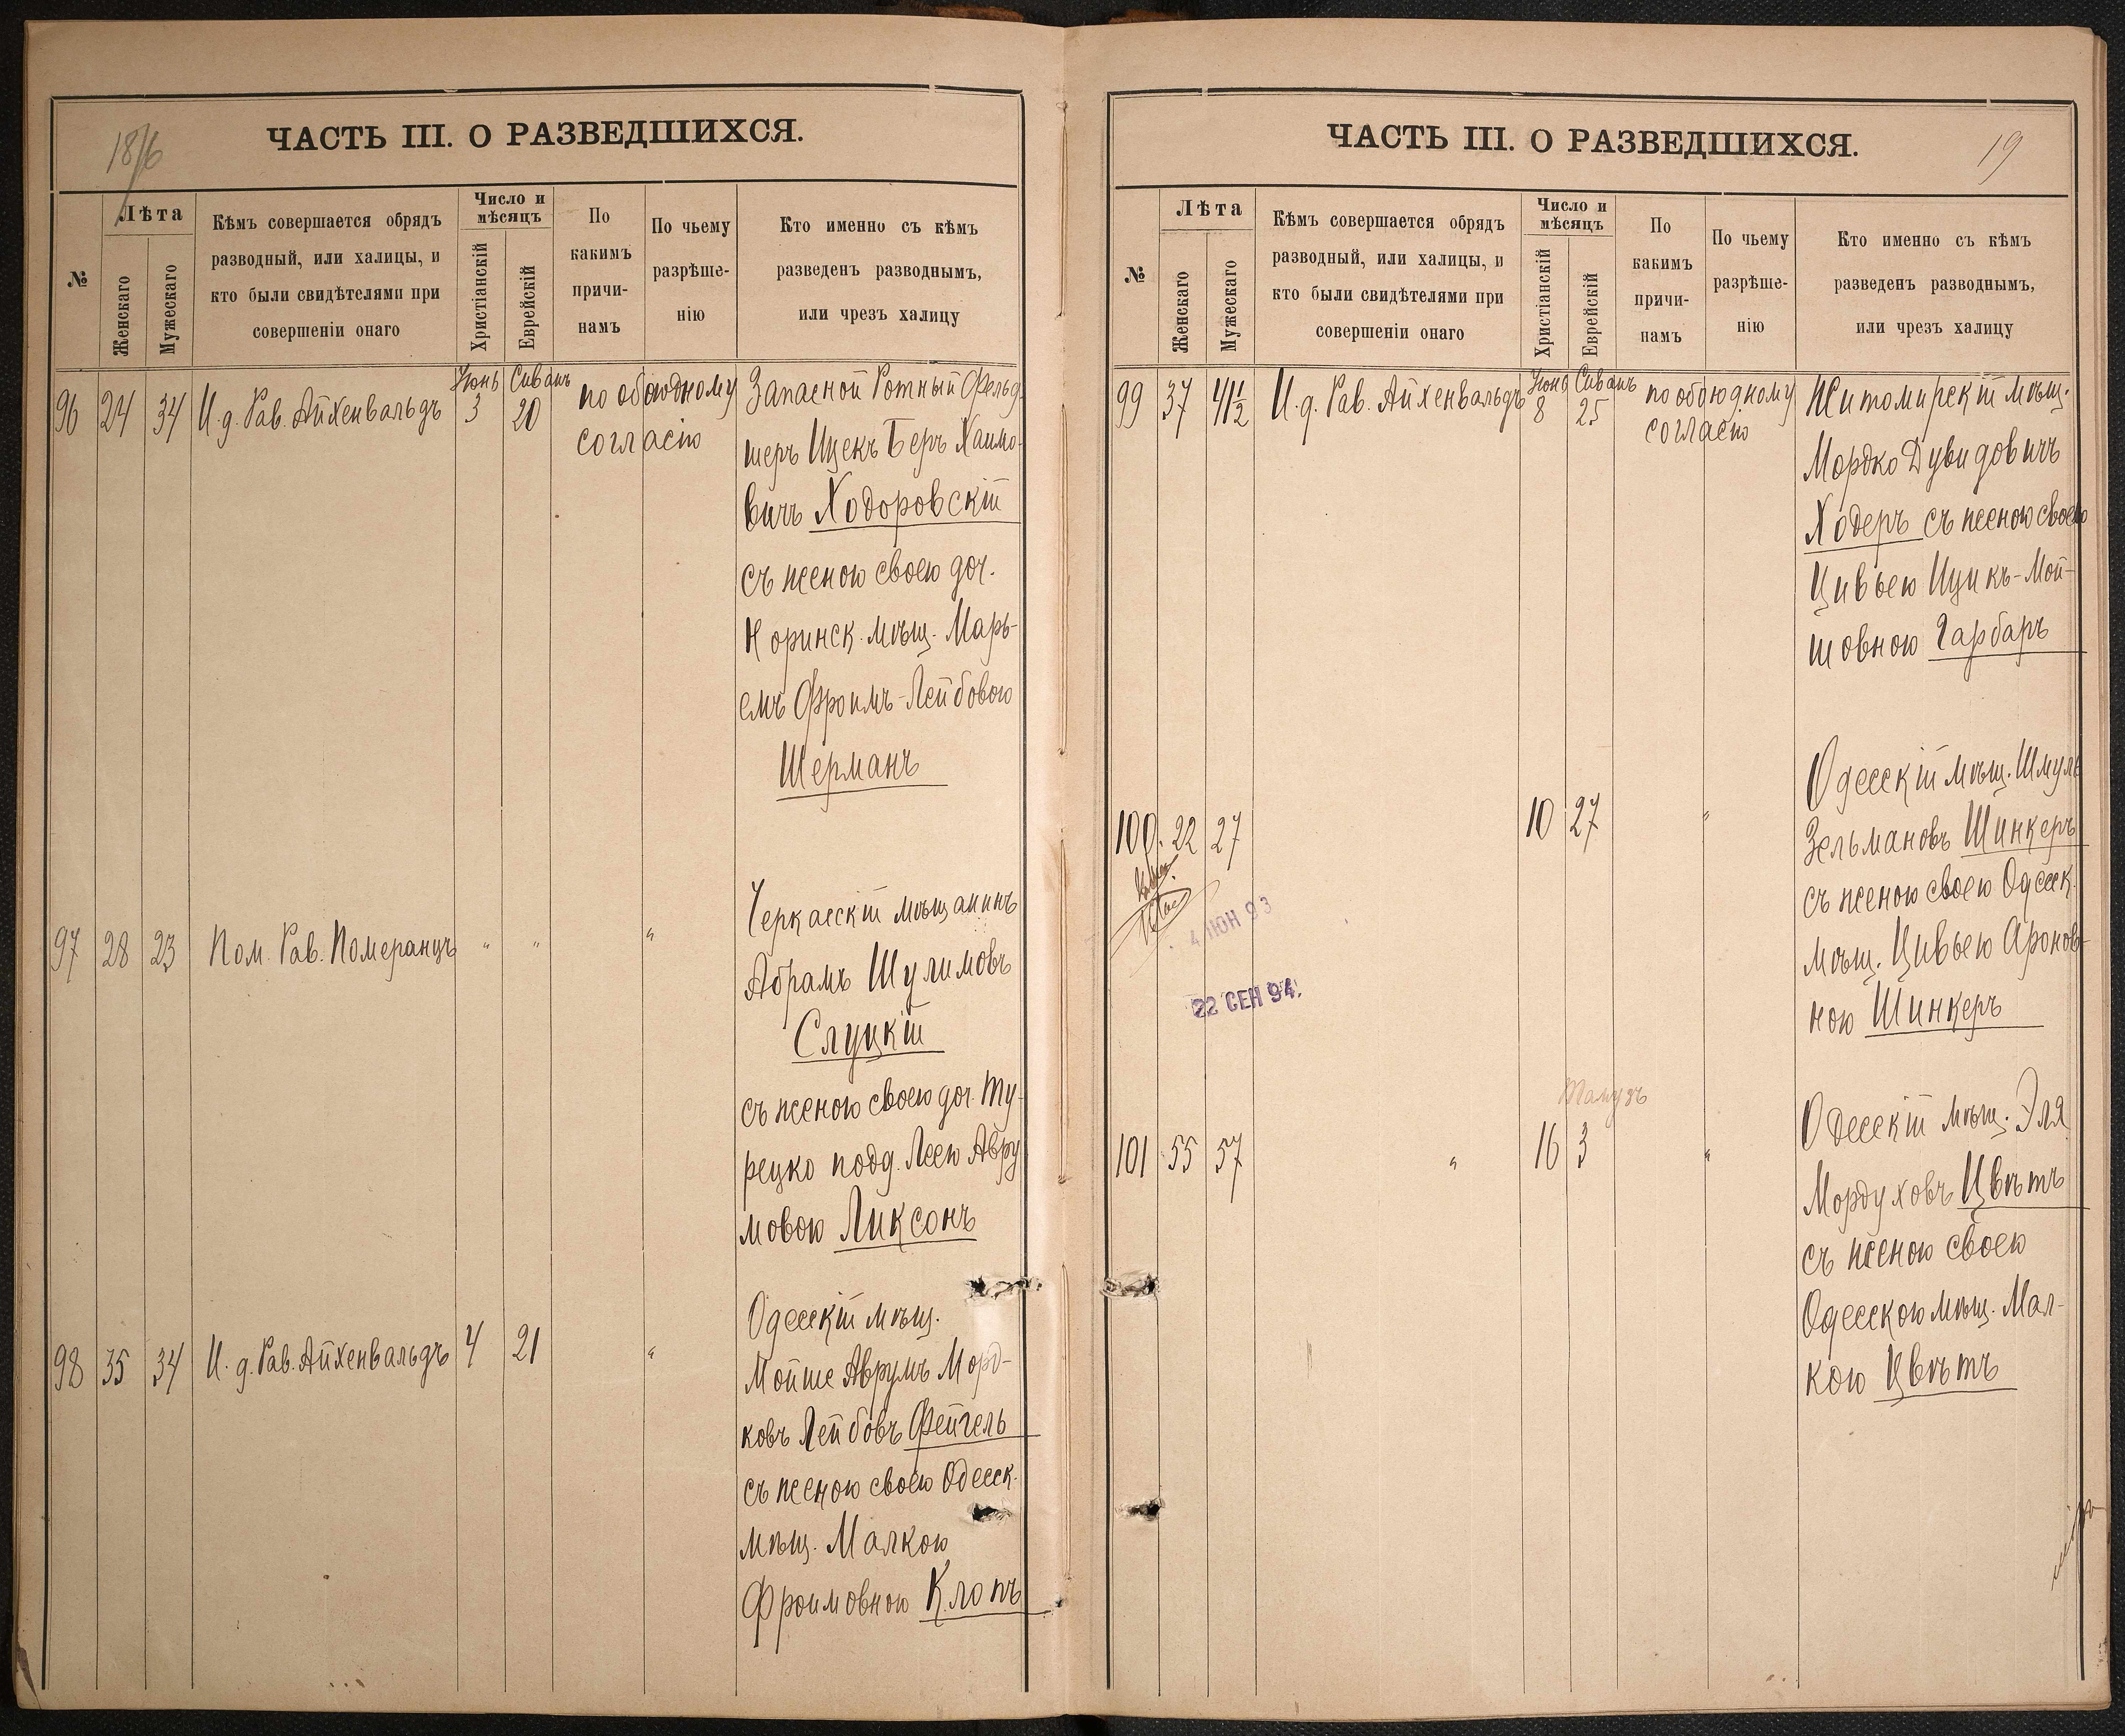 18/6
ЧАСТЬ III. О РАЗВЕДШИХСЯ.
№
Лѣта
Женскаго
Мужескаго
Кѣмъ совершается обрядъ
разводный, или халицы, и
кто были свидѣтелями при
совершеніи онаго
Число и
мѣсяцъ
Христіанскій
Еврейскій
По
какимъ
причи-
намъ
По чьему
разрѣше-
нію
Кто именно съ кѣмъ
разведенъ разводнымъ,
или чрезъ халицу
96 24 34 И. д. Рав. Айхенвальдъ Июнь 3 Сиванъ 20
по обоюдному
согласію
Запасной Ротный Фельд
шеръ Ицекъ Беръ Хаимо-
вичъ Ходоровскій
съ женою своею доч.
Норинск. мѣщ. Марь-
емъ Фроимъ-Лейбовою
Шерманъ
97 28 23 Пом. Рав. Померанцъ " " "
Черкасскій мѣщанинъ
Абрамъ Шулимовъ
Слуцкій
съ женою своею доч. Ту-
рецко подд. Леею Авру
мовою Ликсонъ
98 35 34 И. д. Рав. Айхенвальдъ 4 21 "
Одесскій мѣщ.
Мойше Аврумъ Морд-
ковъ Лейбовъ Фейгель
съ женою своею Одесск.
мѣщ. Малкою
Фроимовною Клопъ
ЧАСТЬ III. О РАЗВЕДШИХСЯ.
19
№
Лѣта
Женскаго
Мужескаго
Кѣмъ совершается обрядъ
разводный, или халицы, и
кто были свидѣтелями при
совершеніи онаго
Число и
мѣсяцъ
Христіанскій
Еврейскій
По
какимъ
причи-
намъ
По чьему
разрѣше-
нію
Кто именно съ кѣмъ
разведенъ разводнымъ,
или чрезъ халицу
99 37 41½ И. д. Рав. Айхенвальдъ Июня 8 Сиванъ 25
по обоюдному
согласію
Житомирскій мѣщ.
Мордко Дувидовичъ
Ходеръ съ женою своею
Цивьею Ицикъ-Мой-
шовною Гарбаръ
100. 22 27 10 27 "
Одесскій мѣщ. Шмуль
Зельмановъ Шинкеръ
съ женою своею Одесск.
мѣщ. Цивьею Аронов-
ною Шинкеръ
4 ІЮН 93
22 СЕН 94.
Тамузъ
101 55 57 " 16 3 "
Одесскій мѣщ. Эля
Мордуховъ Цвѣтъ
съ женою своею
Одесскою мѣщ. Мал-
кою Цвѣтъ